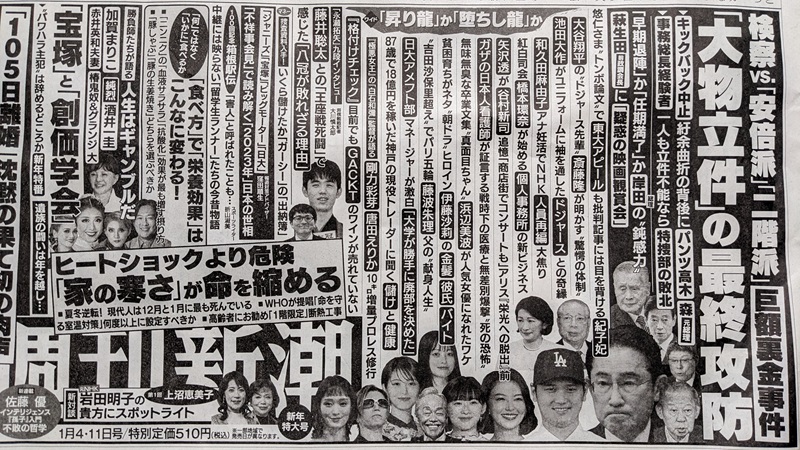 検察 vs.「安倍派」「二階派」巨額裏金事件
「大物立件」の最終攻防
キックバック中止「紆余曲折の背後にパンツ高木
事務総長経験者 一人も立件不能なら「特捜部の敗北」
「早期退陣」か「任期満了」か 岸田の“鈍感力”
萩生田
に「疑惑の映画観賞会」
悠仁さま“トンボ論文”で東大アピールも批判記事には目を背ける紀子妃
ワイド
「昇り龍」か「堕ちし龍」か
大谷翔平の“ドジャース先輩”斎藤隆が明かす“驚愕の体制”
池田大作がユニフォームに袖を通したドジャースとの奇縁
和久田麻由子アナ妊活でNHK人員再編大焦り
紅白司会橋本環奈が始める個人事務所の新ビジネス
矢沢透が谷村新司追憶「商店街でコンサートも」アリス『栄光への脱出』前
ガザの日本人看護師が証言する戦時下の医療と無差別爆撃“死の恐怖”
無味無臭な卒業文集“真面目ちゃん”浜辺美波が人気女優になれたワケ
貧困育ちがネタ 朝ドラヒロイン伊藤沙莉の金髪彼氏バイト
“吉田沙保里超え”でパリ五輪 藤波朱理 父の“献身人生”
日大アメフト部マネージャーが激白「大学が勝手に廃部を決めた」
87歳で18億円を稼いだ神戸の現役トレーダーに聞く「儲けと健康」
「極悪女王」の“白毛和海”監督が語る 剛力彩芽 唐田えりか キロ増量プロレス修行
目前でもGACKTのワインが売れていない
藤井聡太との「王座戦死闘」で感じた「八冠が敗れざる理由」
いくら儲けたか「ガーシー」の「出納簿」
「ジャニーズ」「宝塚」「ビッグモーター」「日大」
「不祥事会見」で読み解く「2023年」日本の世相
箱根駅伝
「害人」と呼ばれたことも…
中継には映らない「留学生ランナー」たちの今昔物語
「何」ではなく「いかに」食べるか
「食べ方」で「栄養効果」はこんなに変わる!
勝負師たちが語る 人生はギャンブルだ
加賀まりこ
純烈 酒井一圭
赤井英和夫妻 椿鬼奴&グランジ大
「宝塚」と「創価学会」
“パワハラ主犯”は辞めるどころか新年特番
遺族の闘いは年を越し…
「105日離婚」沈黙の果て初の肉声
ヒートショックより危険
「家の寒さ」が命を縮める
■夏冬逆転!現代人は12月と1月に最も死んでいる ■WHOが提唱「命を守る室温対策」何度以上に設定すべきか ■高齢者にお勧め「1階限定」断熱工事
週刊新潮
新年特大号
新連載
佐藤 優
インテリジェンス「孫子」入門
不敗の哲学
新対談
岩田明子の
貴方にスポットライト
第1回 上沼恵美子
1月4・11日号/特別定価510円(税込)
※一部地域で発売日が異なります。